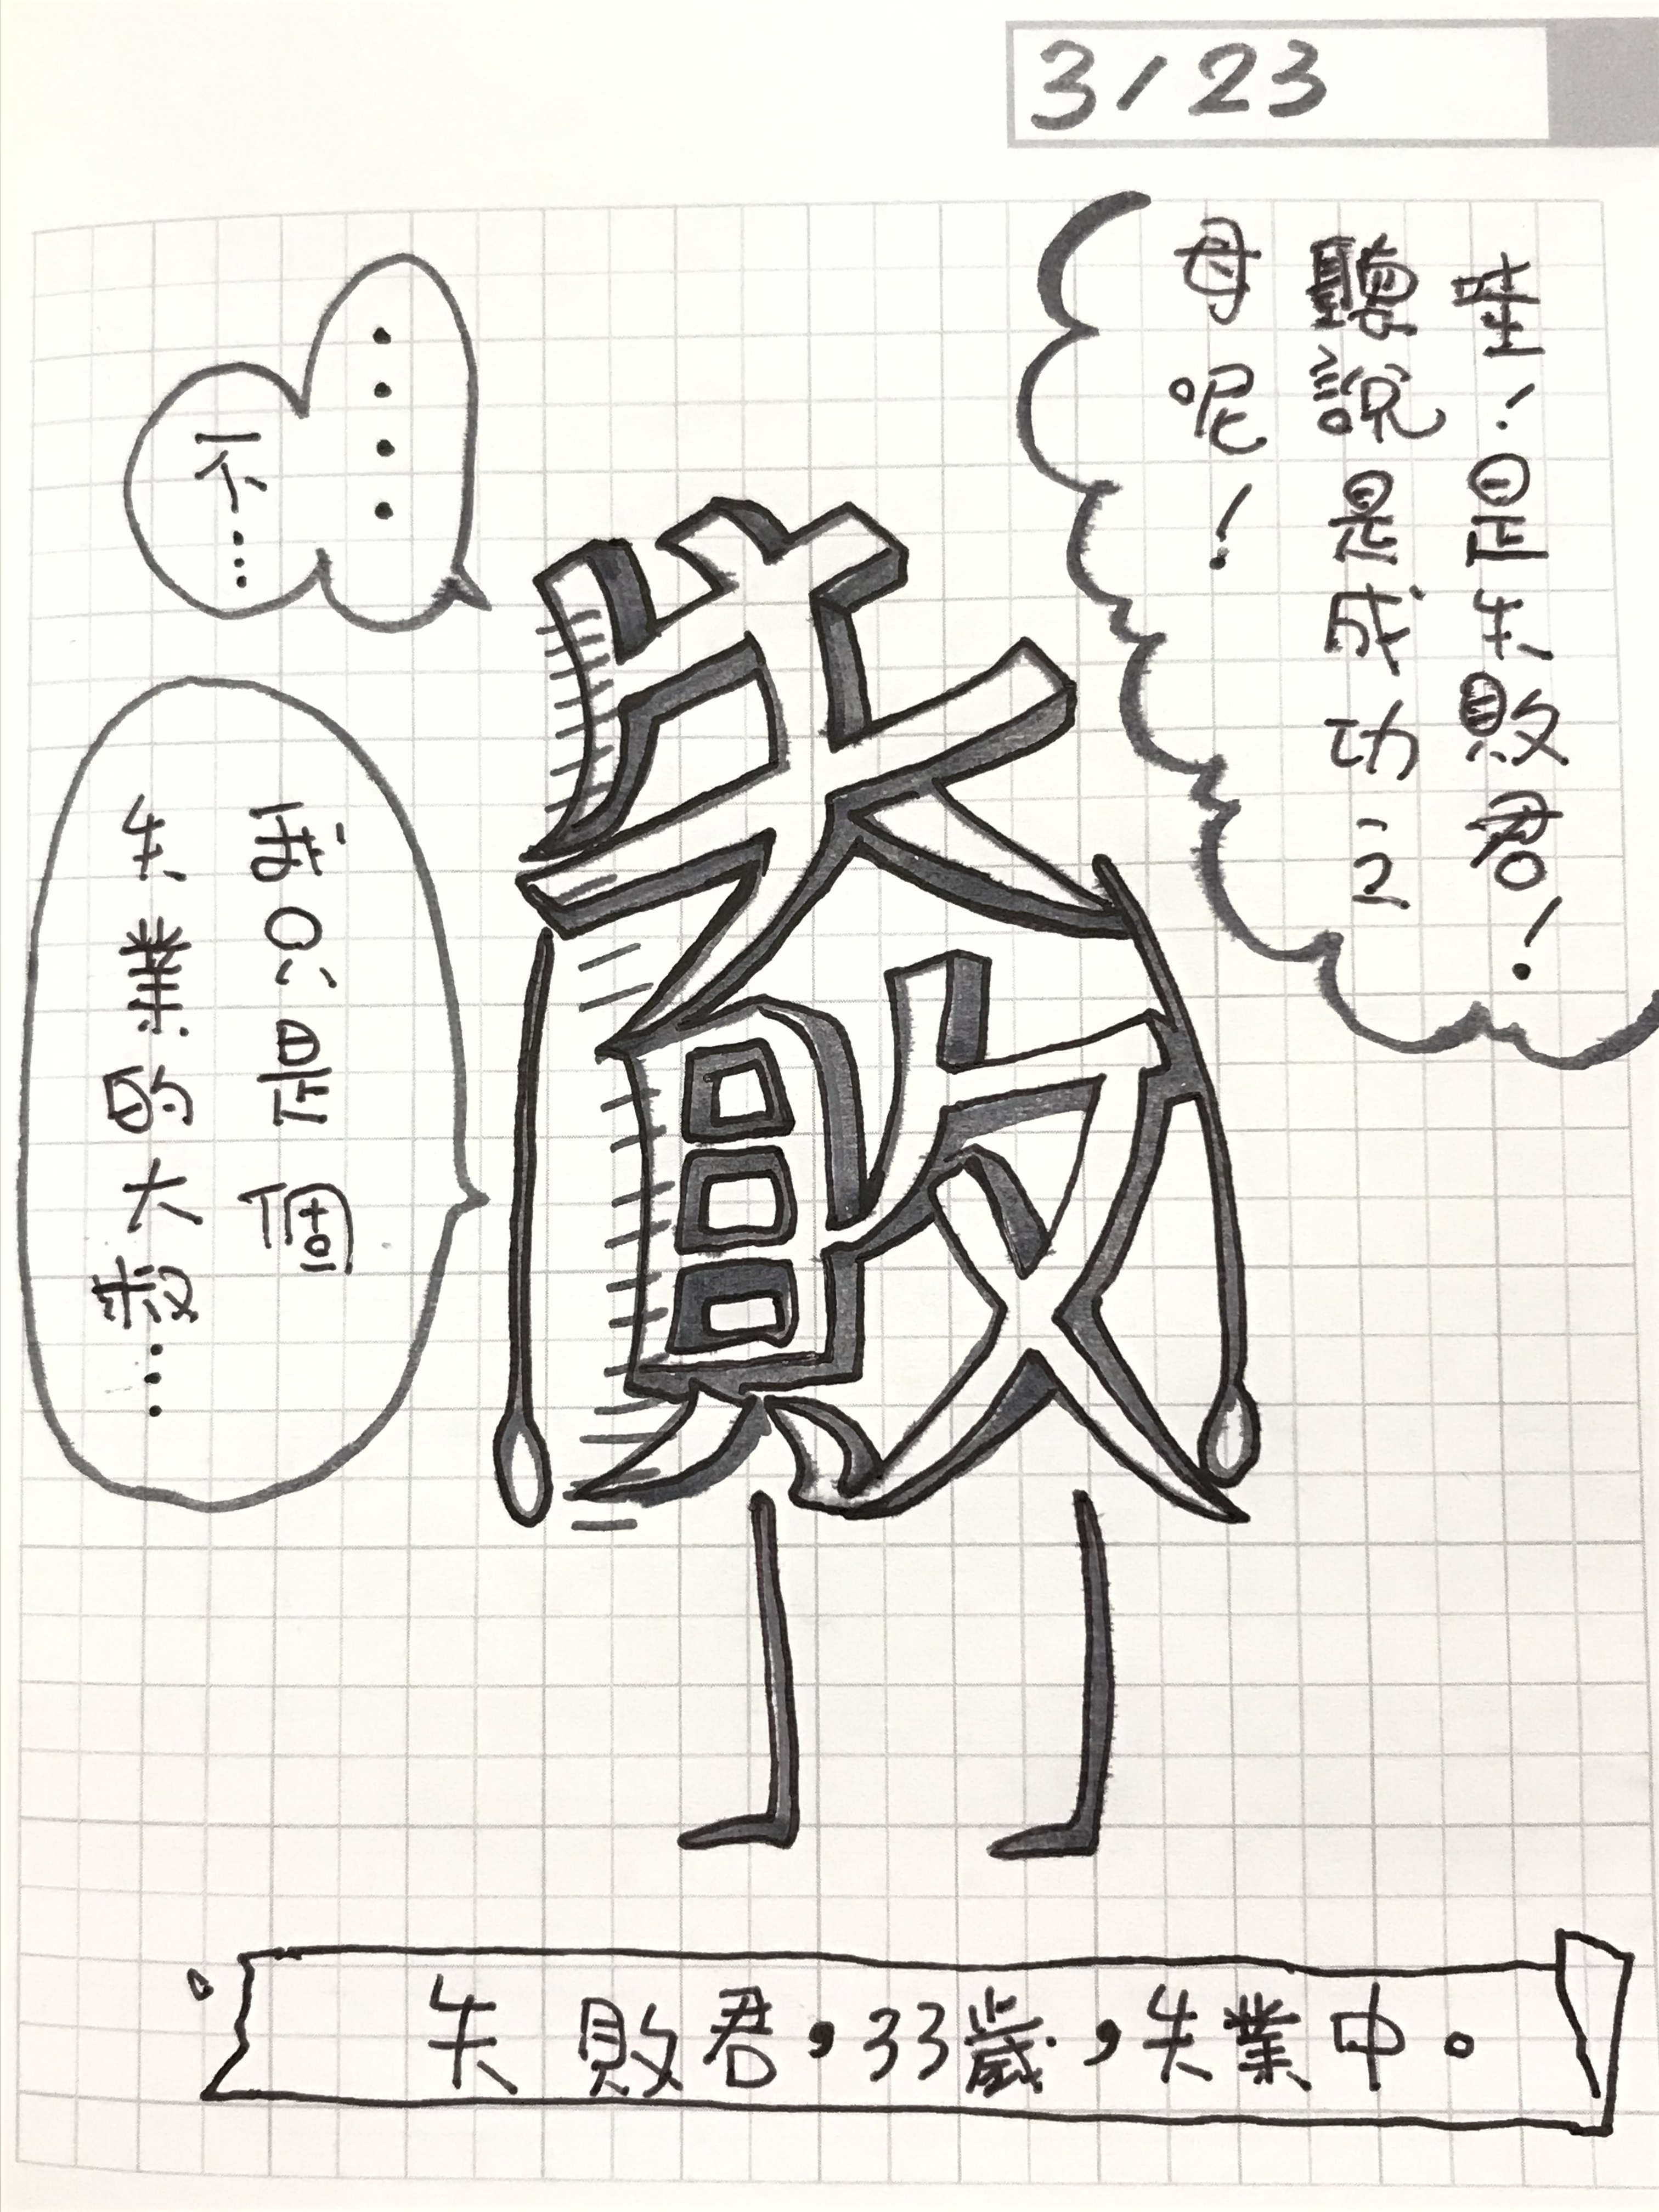 3/23
哇！是失敗君！
聽說是成功之
母呢！
‧‧‧‧
不…
失敗
我只是個
失業的大叔…
失敗君，33歲，失業中。